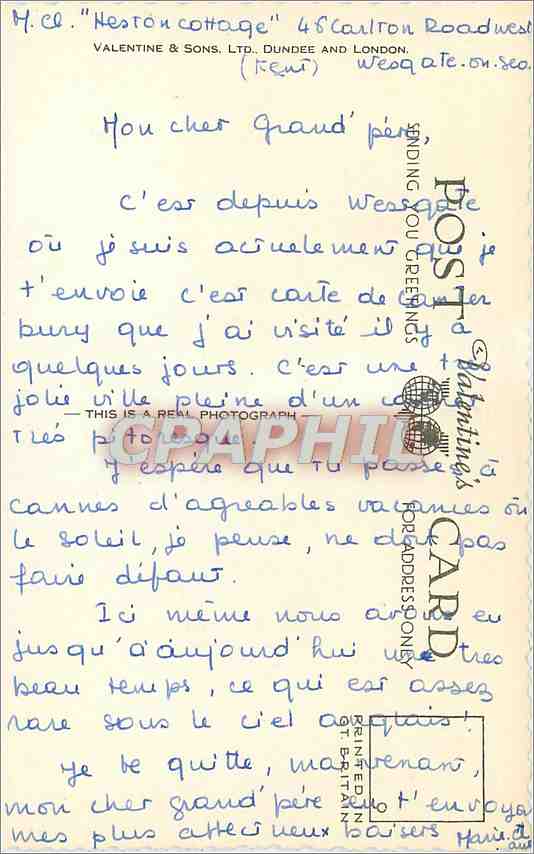 M. Cl. "Heston cottage" 48 Carlton Road west
VALENTINE & SONS, LTD., DUNDEE AND LONDON.
(Kent) Wesgate-on-sea.
Mon cher Grand'père,
C'est depuis Westgate
où je suis actuelement que je
t'envoie c'est carte de Canter
bury que j'ai visité il y a
quelques jours. C'est une très
jolie ville pleine d'un
THIS IS A REAL PHOTOGRAPH
très pitoresque.
J'espère que tu passes à
cannes d'agreables vacances où
le soleil, je pense, ne doit pas
faire défaut.
Ici même nous avons eu
jusqu'à aujourd'hui une tres
beau temps, ce qui est assez
rare sous le ciel anglais!
Je te quitte, maintenant,
mon cher grand'père en t'envoyant
mes plus affectueux baisers Marie-Cl
POST CARD
SENDING YOU GREETINGS
FOR ADDRESS ONLY
Valentine's
PRINTED IN
GT. BRITAIN
CPAPHIL